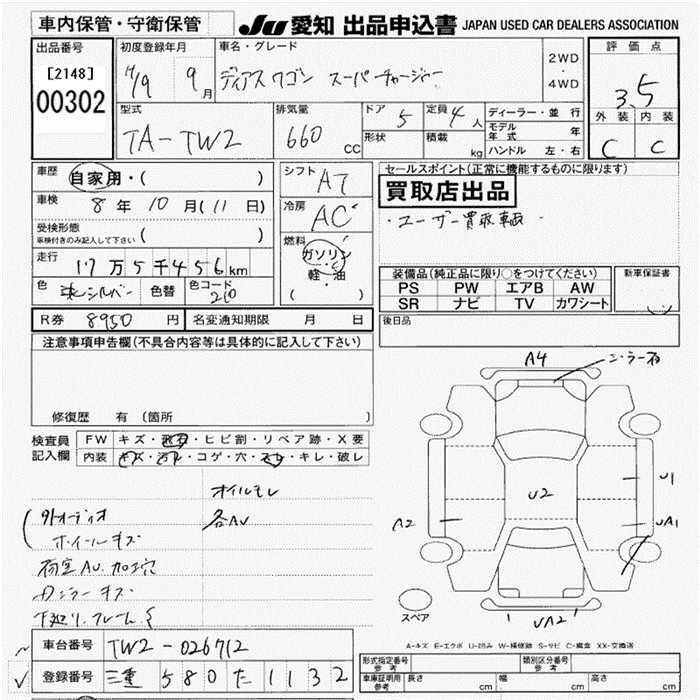 車内保管・守衛保管
JU 愛知 出品申込書 JAPAN USED CAR DEALERS ASSOCIATION
出品番号
[2148]
00302
初度登録年月
H/9 9月
車名・グレード
ディアス ワゴン スーパーチャージャー
2WD
・
4WD
評価点
3.5
外装 内装
C C
型式
TA-TW2
排気量
660 cc
ドア 5
定員 4人
形状
積載 kg
ディーラー・並行
モデル年式 年
ハンドル 左・右
車歴 自家用・( )
車検 8年10月(11日)
受検形態
車検付きのみ記入して下さい ( )
走行 17万5千456km
色 シルバー 色替 色コード
シフト AT
冷房 AC
燃料
ガソリン
軽・油
( )
セールスポイント(正常に機能するものに限ります)
買取店出品
・ユーザー買取車輌
装備品(純正品に限り○をつけてください)
PS PW エアB AW
SR ナビ TV カワシート
新車保証書
R券 8950円
名変通知期限 月 日
後日品
注意事項申告欄(不具合内容等は具体的に記入して下さい)
修復歴 有(箇所 )
検査員
記入欄
FW キズ・飛石・ヒビ割・リペア跡・X要
内装 キズ・汚れ・コゲ・穴・スレ・キレ・破レ
オイルモレ
外オーディオ
各AU
ホイールキズ
荷室AU.加工穴
Dミラーキズ
下廻り.フレームS
A4
U2
A2
U1
UA1
UA2
スペア
A-キズ E-エクボ U-凹み W-補修跡 S-サビ C-腐食 XX-交換済
車台番号 TW2-026712
登録番号 三重 580 た 1132
形式指定番号
参考
類別区分番号
参考
車庫証明用
参考
長さ cm
幅 cm
高さ cm